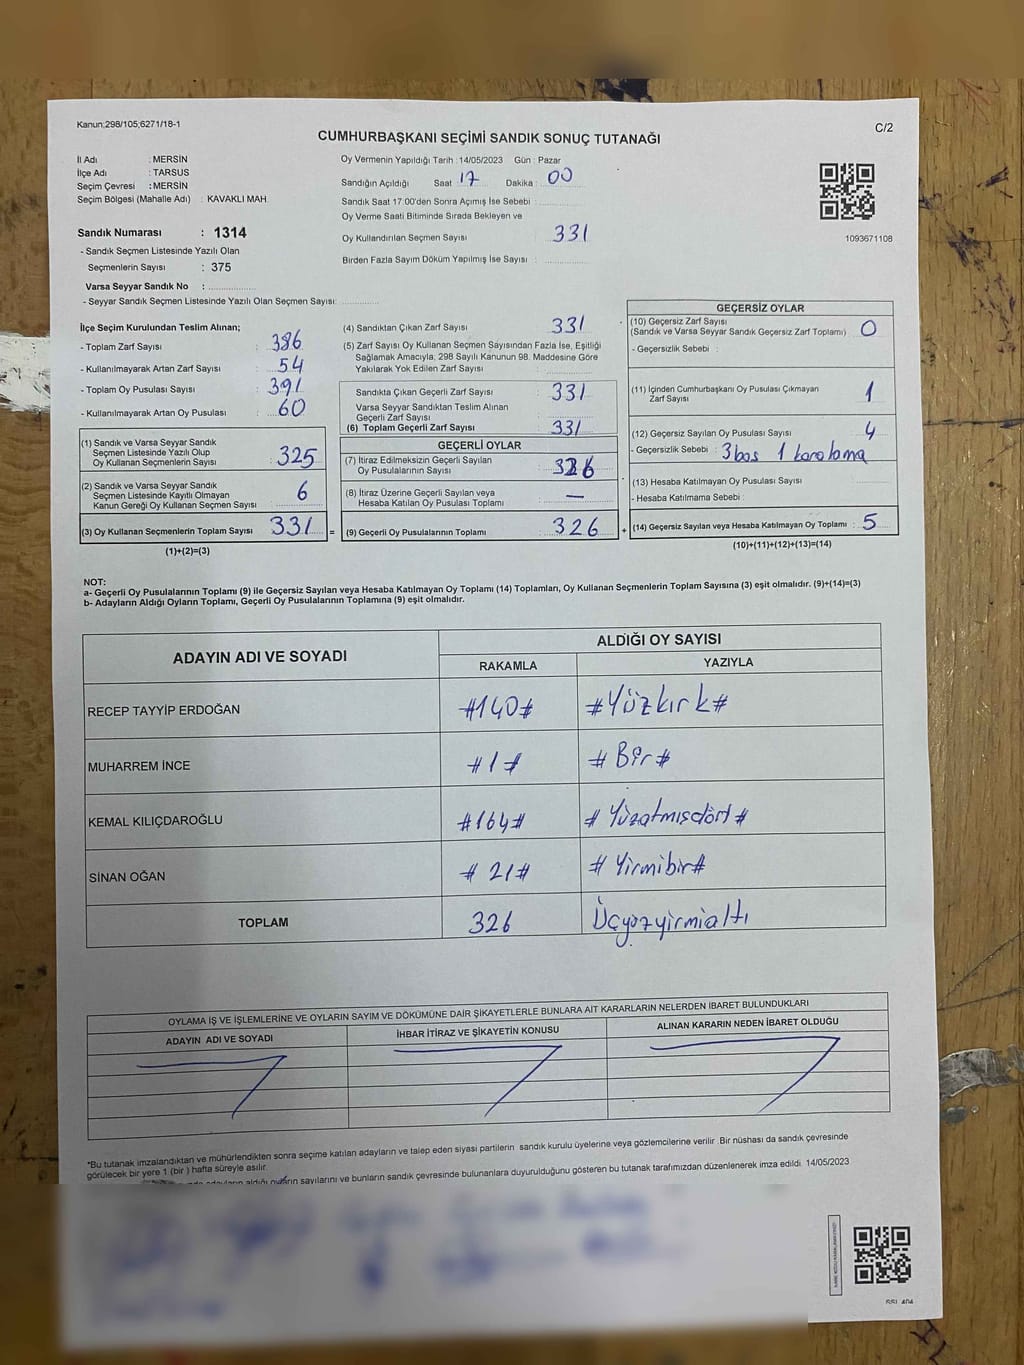 Kanun;298/105;6271/18-1
C/2
CUMHURBAŞKANI SEÇİMİ SANDIK SONUÇ TUTANAĞI
İl Adı : MERSİN
İlçe Adı : TARSUS
Seçim Çevresi : MERSİN
Seçim Bölgesi (Mahalle Adı) : KAVAKLI MAH.
Oy Vermenin Yapıldığı Tarih : 14/05/2023 Gün : Pazar
Sandığın Açıldığı Saat 17 Dakika : 00
Sandık Saat 17:00'den Sonra Açımış İse Sebebi :
Oy Verme Saati Bitiminde Sırada Bekleyen ve
Oy Kullandırılan Seçmen Sayısı 331
Birden Fazla Sayım Döküm Yapılmış İse Sayısı :
1093671108
Sandık Numarası : 1314
- Sandık Seçmen Listesinde Yazılı Olan
Seçmenlerin Sayısı : 375
Varsa Seyyar Sandık No :
- Seyyar Sandık Seçmen Listesinde Yazılı Olan Seçmen Sayısı:
İlçe Seçim Kurulundan Teslim Alınan;
- Toplam Zarf Sayısı : 386
- Kullanılmayarak Artan Zarf Sayısı : 54
- Toplam Oy Pusulası Sayısı : 391
- Kullanılmayarak Artan Oy Pusulası : 60
(1) Sandık ve Varsa Seyyar Sandık
Seçmen Listesinde Yazılı Olup
Oy Kullanan Seçmenlerin Sayısı : 325
(2) Sandık ve Varsa Seyyar Sandık
Seçmen Listesinde Kayıtlı Olmayan
Kanun Gereği Oy Kullanan Seçmen Sayısı : 6
(3) Oy Kullanan Seçmenlerin Toplam Sayısı : 331 =
(1)+(2)=(3)
(4) Sandıktan Çıkan Zarf Sayısı : 331
(5) Zarf Sayısı Oy Kullanan Seçmen Sayısından Fazla İse, Eşitliği
Sağlamak Amacıyla, 298 Sayılı Kanunun 98. Maddesine Göre
Yakılarak Yok Edilen Zarf Sayısı :
Sandıkta Çıkan Geçerli Zarf Sayısı : 331
Varsa Seyyar Sandıktan Teslim Alınan
Geçerli Zarf Sayısı :
(6) Toplam Geçerli Zarf Sayısı : 331
GEÇERLİ OYLAR
(7) İtiraz Edilmeksizin Geçerli Sayılan
Oy Pusulalarının Sayısı : 326
(8) İtiraz Üzerine Geçerli Sayılan veya
Hesaba Katılan Oy Pusulası Toplamı : —
(9) Geçerli Oy Pusulalarının Toplamı : 326 +
GEÇERSİZ OYLAR
(10) Geçersiz Zarf Sayısı
(Sandık ve Varsa Seyyar Sandık Geçersiz Zarf Toplamı) : 0
- Geçersizlik Sebebi :
(11) İçinden Cumhurbaşkanı Oy Pusulası Çıkmayan
Zarf Sayısı : 1
(12) Geçersiz Sayılan Oy Pusulası Sayısı : 4
- Geçersizlik Sebebi : 3 boş 1 karalama
(13) Hesaba Katılmayan Oy Pusulası Sayısı :
- Hesaba Katılmama Sebebi :
(14) Geçersiz Sayılan veya Hesaba Katılmayan Oy Toplamı : 5
(10)+(11)+(12)+(13)=(14)
NOT:
a- Geçerli Oy Pusulalarının Toplamı (9) ile Geçersiz Sayılan veya Hesaba Katılmayan Oy Toplamı (14) Toplamları, Oy Kullanan Seçmenlerin Toplam Sayısına (3) eşit olmalıdır. (9)+(14)=(3)
b- Adayların Aldığı Oyların Toplamı, Geçerli Oy Pusulalarının Toplamına (9) eşit olmalıdır.
ADAYIN ADI VE SOYADI
ALDIĞI OY SAYISI
RAKAMLA YAZIYLA
RECEP TAYYİP ERDOĞAN #140# #Yüzkırk#
MUHARREM İNCE #1# #Bir#
KEMAL KILIÇDAROĞLU #164# #Yüzatmışdört#
SİNAN OĞAN #21# #Yirmibir#
TOPLAM 326 Üçyüzyirmialtı
OYLAMA İŞ VE İŞLEMLERİNE VE OYLARIN SAYIM VE DÖKÜMÜNE DAİR ŞİKAYETLERLE BUNLARA AİT KARARLARIN NELERDEN İBARET BULUNDUKLARI
ADAYIN ADI VE SOYADI İHBAR İTİRAZ VE ŞİKAYETİN KONUSU ALINAN KARARIN NEDEN İBARET OLDUĞU
*Bu tutanak imzalandıktan ve mühürlendikten sonra seçime katılan adayların ve talep eden siyasi partilerin sandık kurulu üyelerine veya gözlemcilerine verilir. Bir nüshası da sandık çevresinde
görülecek bir yere 1 (bir ) hafta süreyle asılır.
adayların aldığı oyların sayılarını ve bunların sandık çevresinde bulunanlara duyurulduğunu gösteren bu tutanak tarafımızdan düzenlenerek imza edildi. 14/05/2023